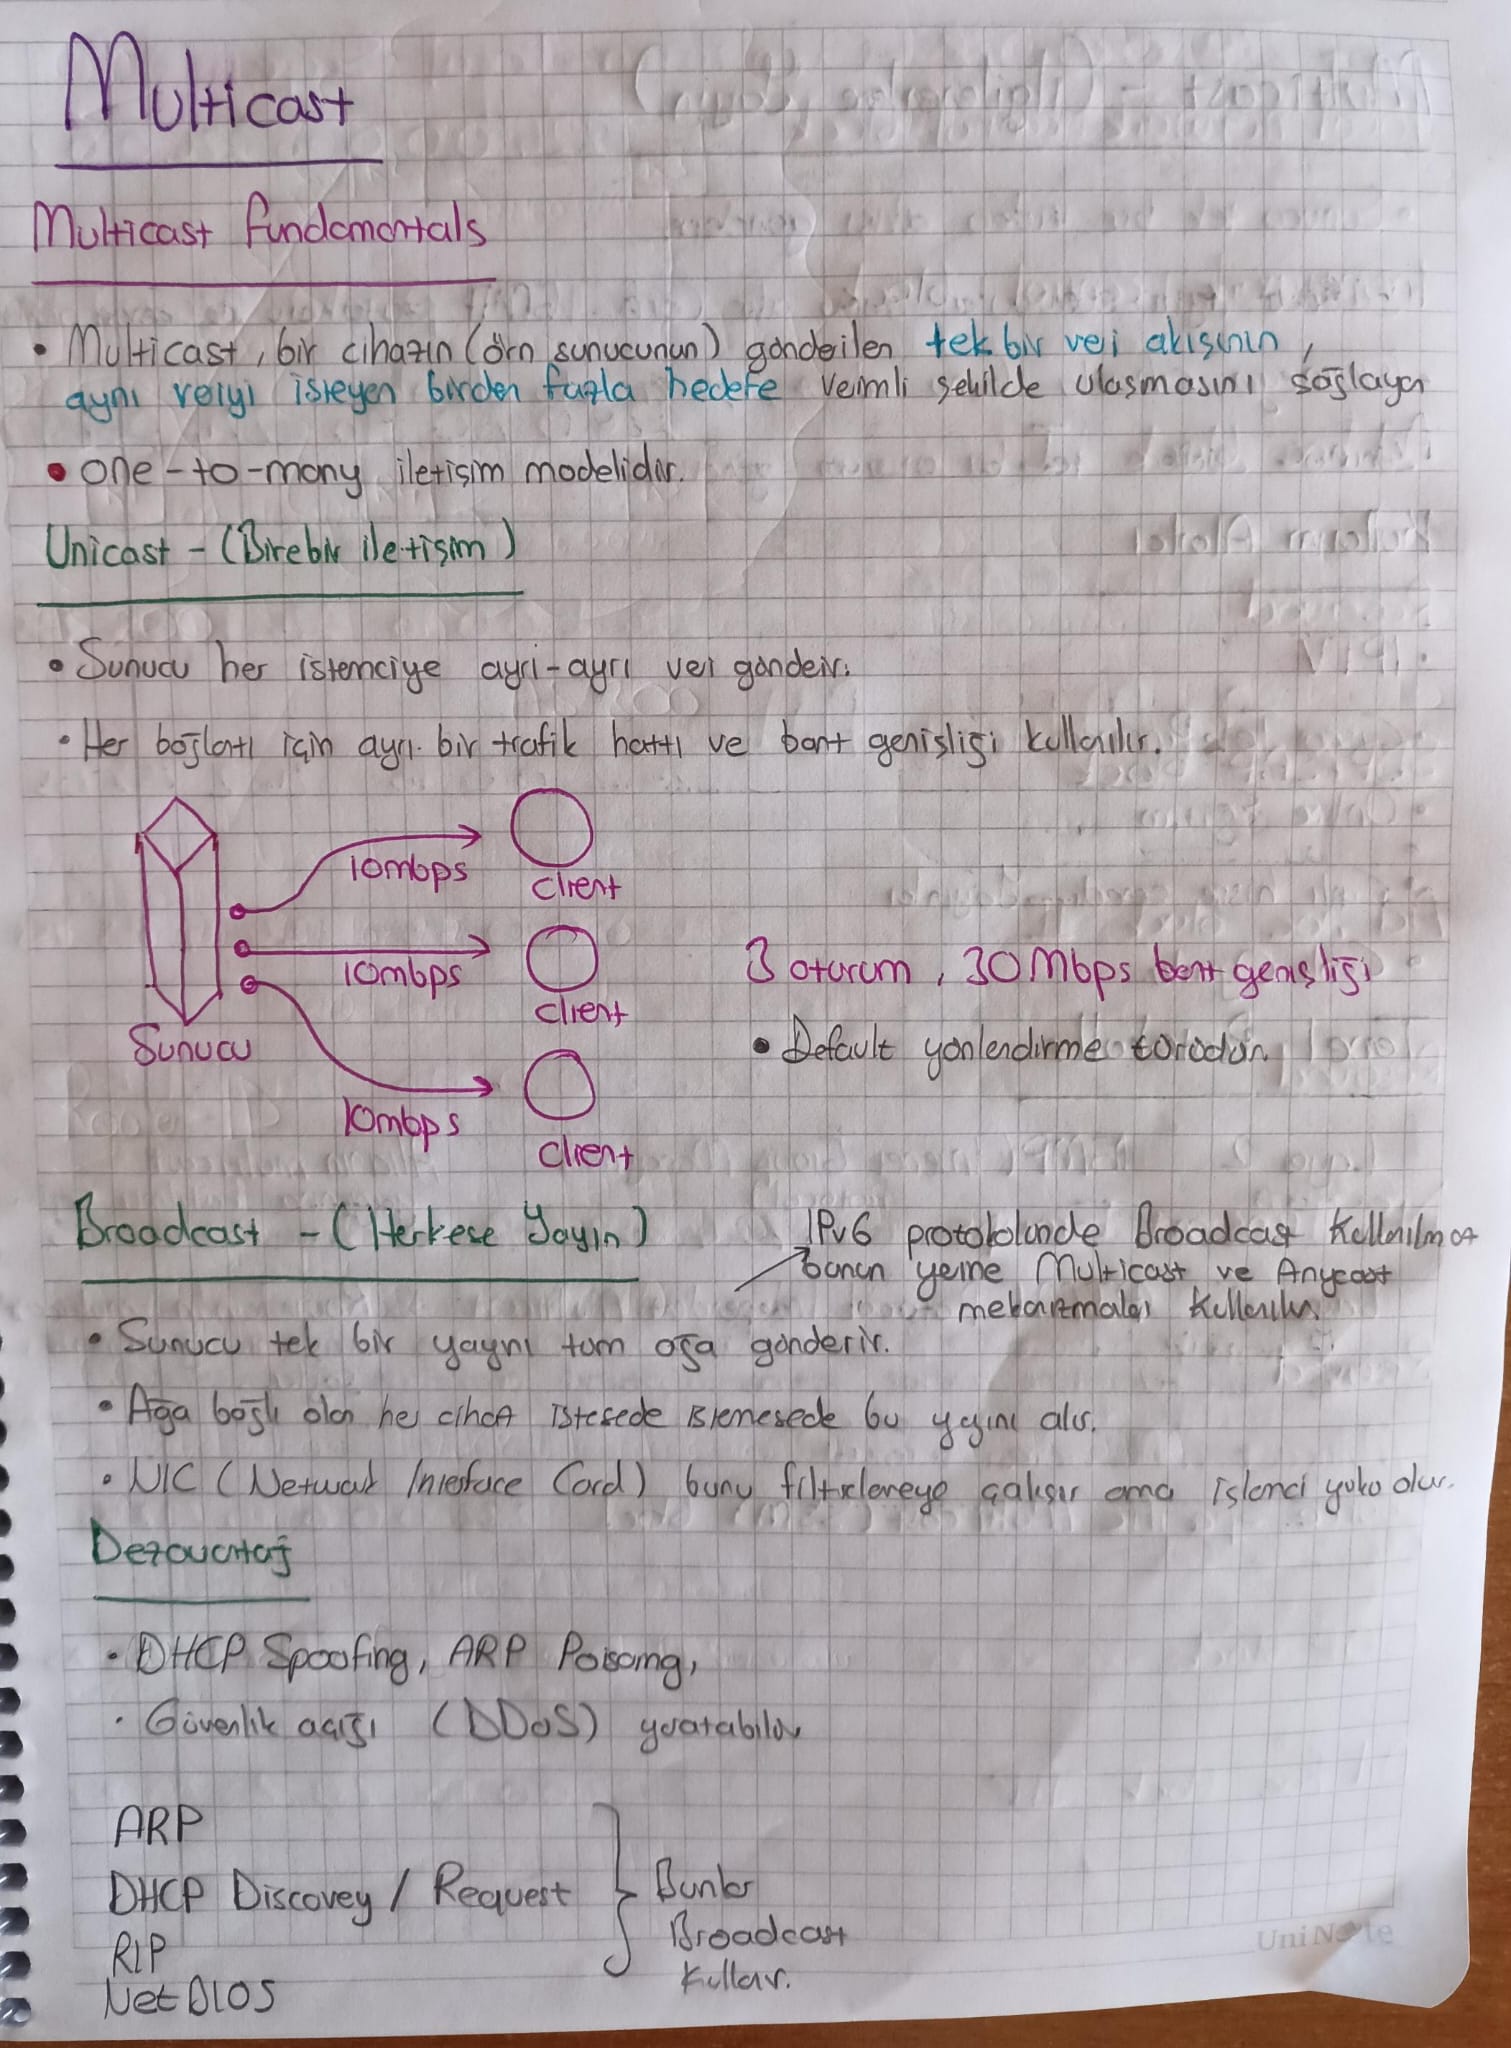 Multicast
Multicast fundamentals
• Multicast, bir cihazın (örn sunucunun) gönderilen tek bir veri akışının,
aynı veriyi isteyen birden fazla hedefe verimli şekilde ulaşmasını sağlayan
• one-to-many iletişim modelidir.
Unicast - (Birebir iletişim)
• Sunucu her istemciye ayrı-ayrı veri gönderir.
• Her bağlantı için ayrı bir trafik hattı ve bant genişliği kullanılır.
10mbps
client
10mbps
client
3 oturum, 30Mbps bant genişliği
Sunucu
• Default yönlendirme türüdür.
10mbps
client
Broadcast - (Herkese Yayın)
IPv6 protokolünde Broadcast Kullanılmaz
bunun yerine Multicast ve Anycast
mekanizmaları Kullanılır.
• Sunucu tek bir yayını tüm ağa gönderir.
• Ağa bağlı olan her cihaz istesede istemesede bu yayını alır.
• NIC (Network Interface Card) bunu filtrelemeye çalışır ama işlemci yükü olur.
Dezavantaj
• DHCP Spoofing, ARP Poisoning,
• Güvenlik açığı (DDoS) yaratabilir
ARP
DHCP Discovey / Request
RIP
NetBIOS
Bunlar
Broadcast
Kullanır.
UniNote